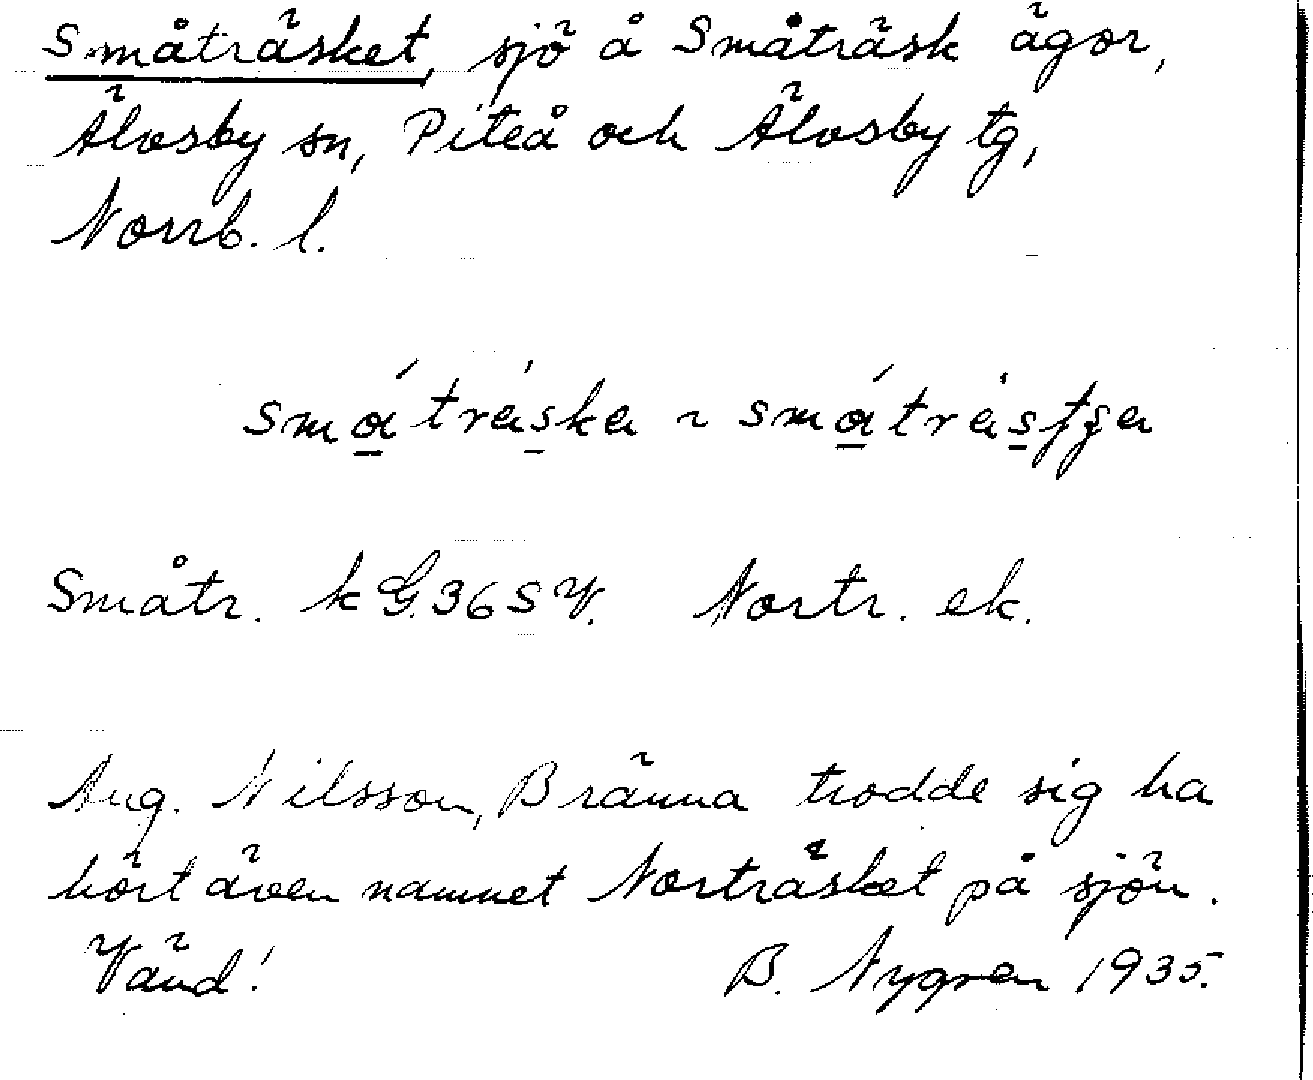 Småträsket, sjö å Småträsk ägor,
Älvsby sn, Piteå och Älvsby tg,
Norrb. l.
småträska ~ småträsʃʒa
Småtr. k G.36SV. Nortr. ek.
Aug. Nilsson, Bränna trodde sig ha
hört även namnet Norträsket på sjön.
Vänd! B. Nygren 1935.